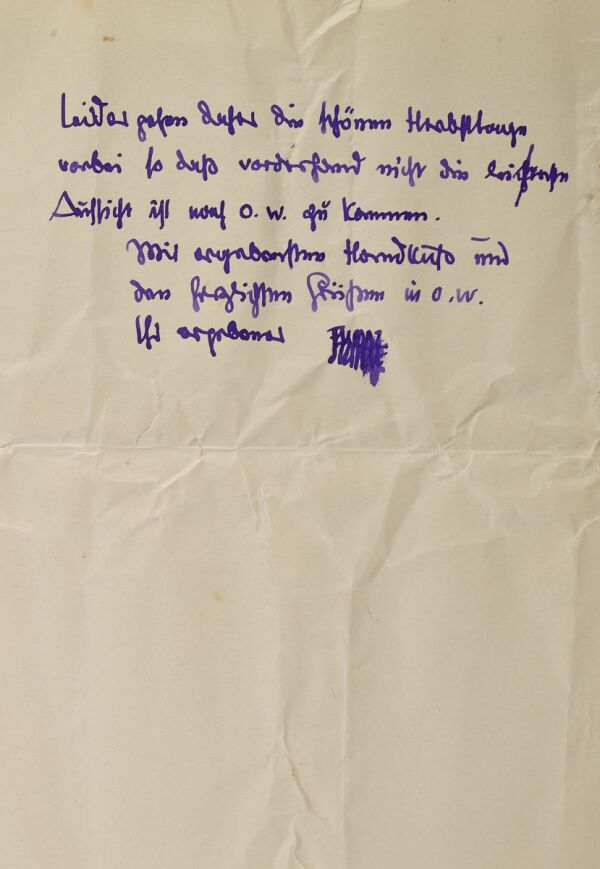 Leider gehen daher die schönen Herbsttage
vorbei so daß vorderhand nicht die leiseste
Aussicht ist nach O. W. zu kommen.
Mit ergebensten Handkuß und
den herzlichsten Grüßen in O. W.
Ihr ergebener